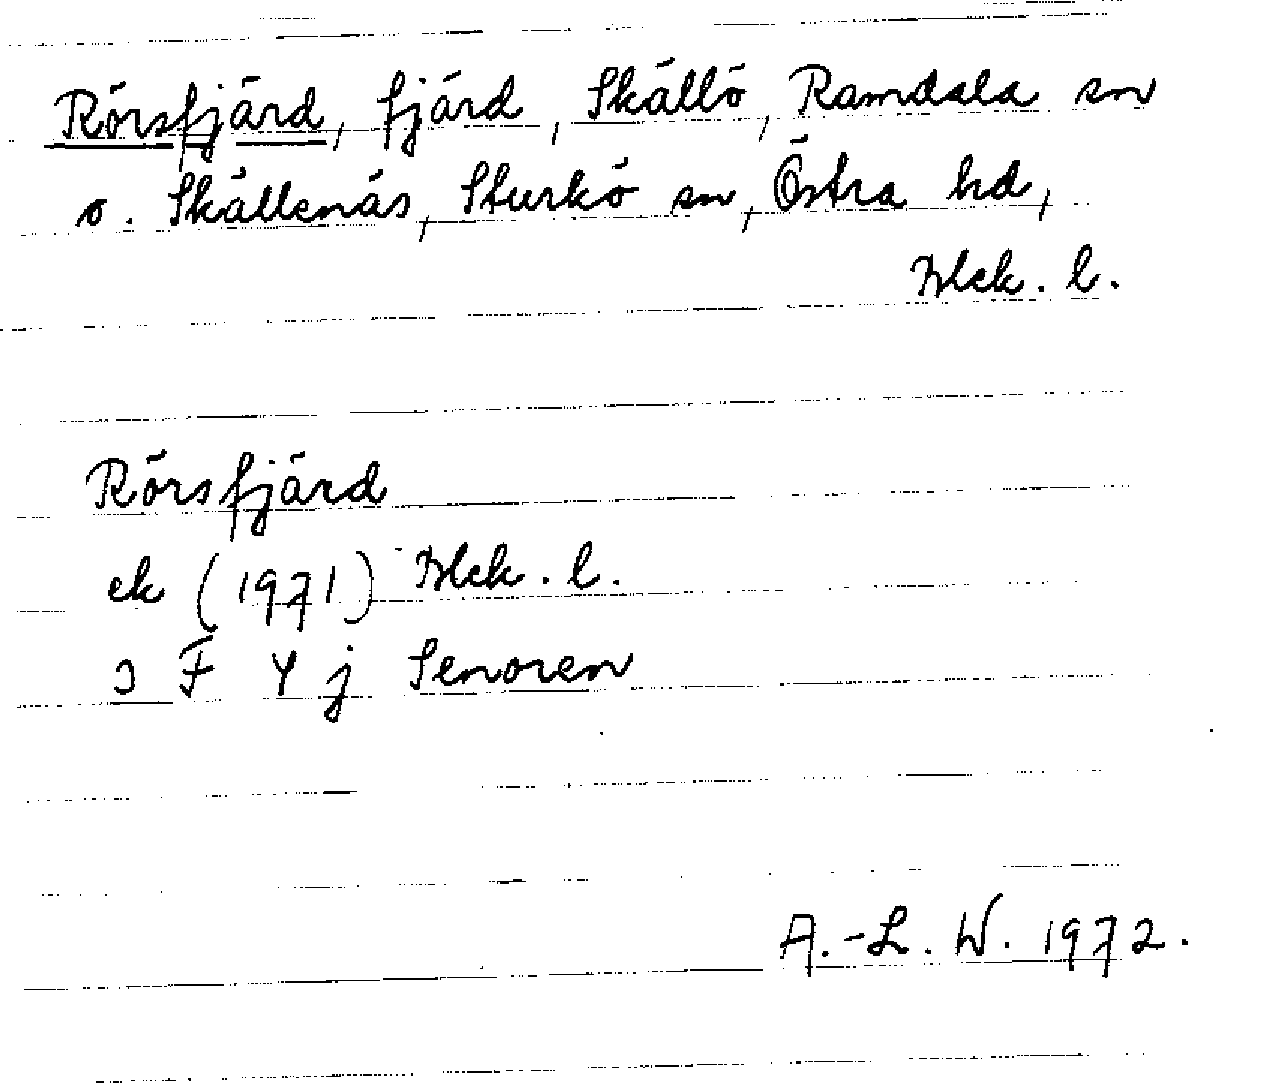 Rörsfjärd, fjärd, Skällö, Ramdala sn
o. Skällenäs, Sturkö sn, Östra hd,
Blek. l.
Rörsfjärd
ek (1971) Blek. l.
3 F Y j Senoren
A.-L. W. 1972.